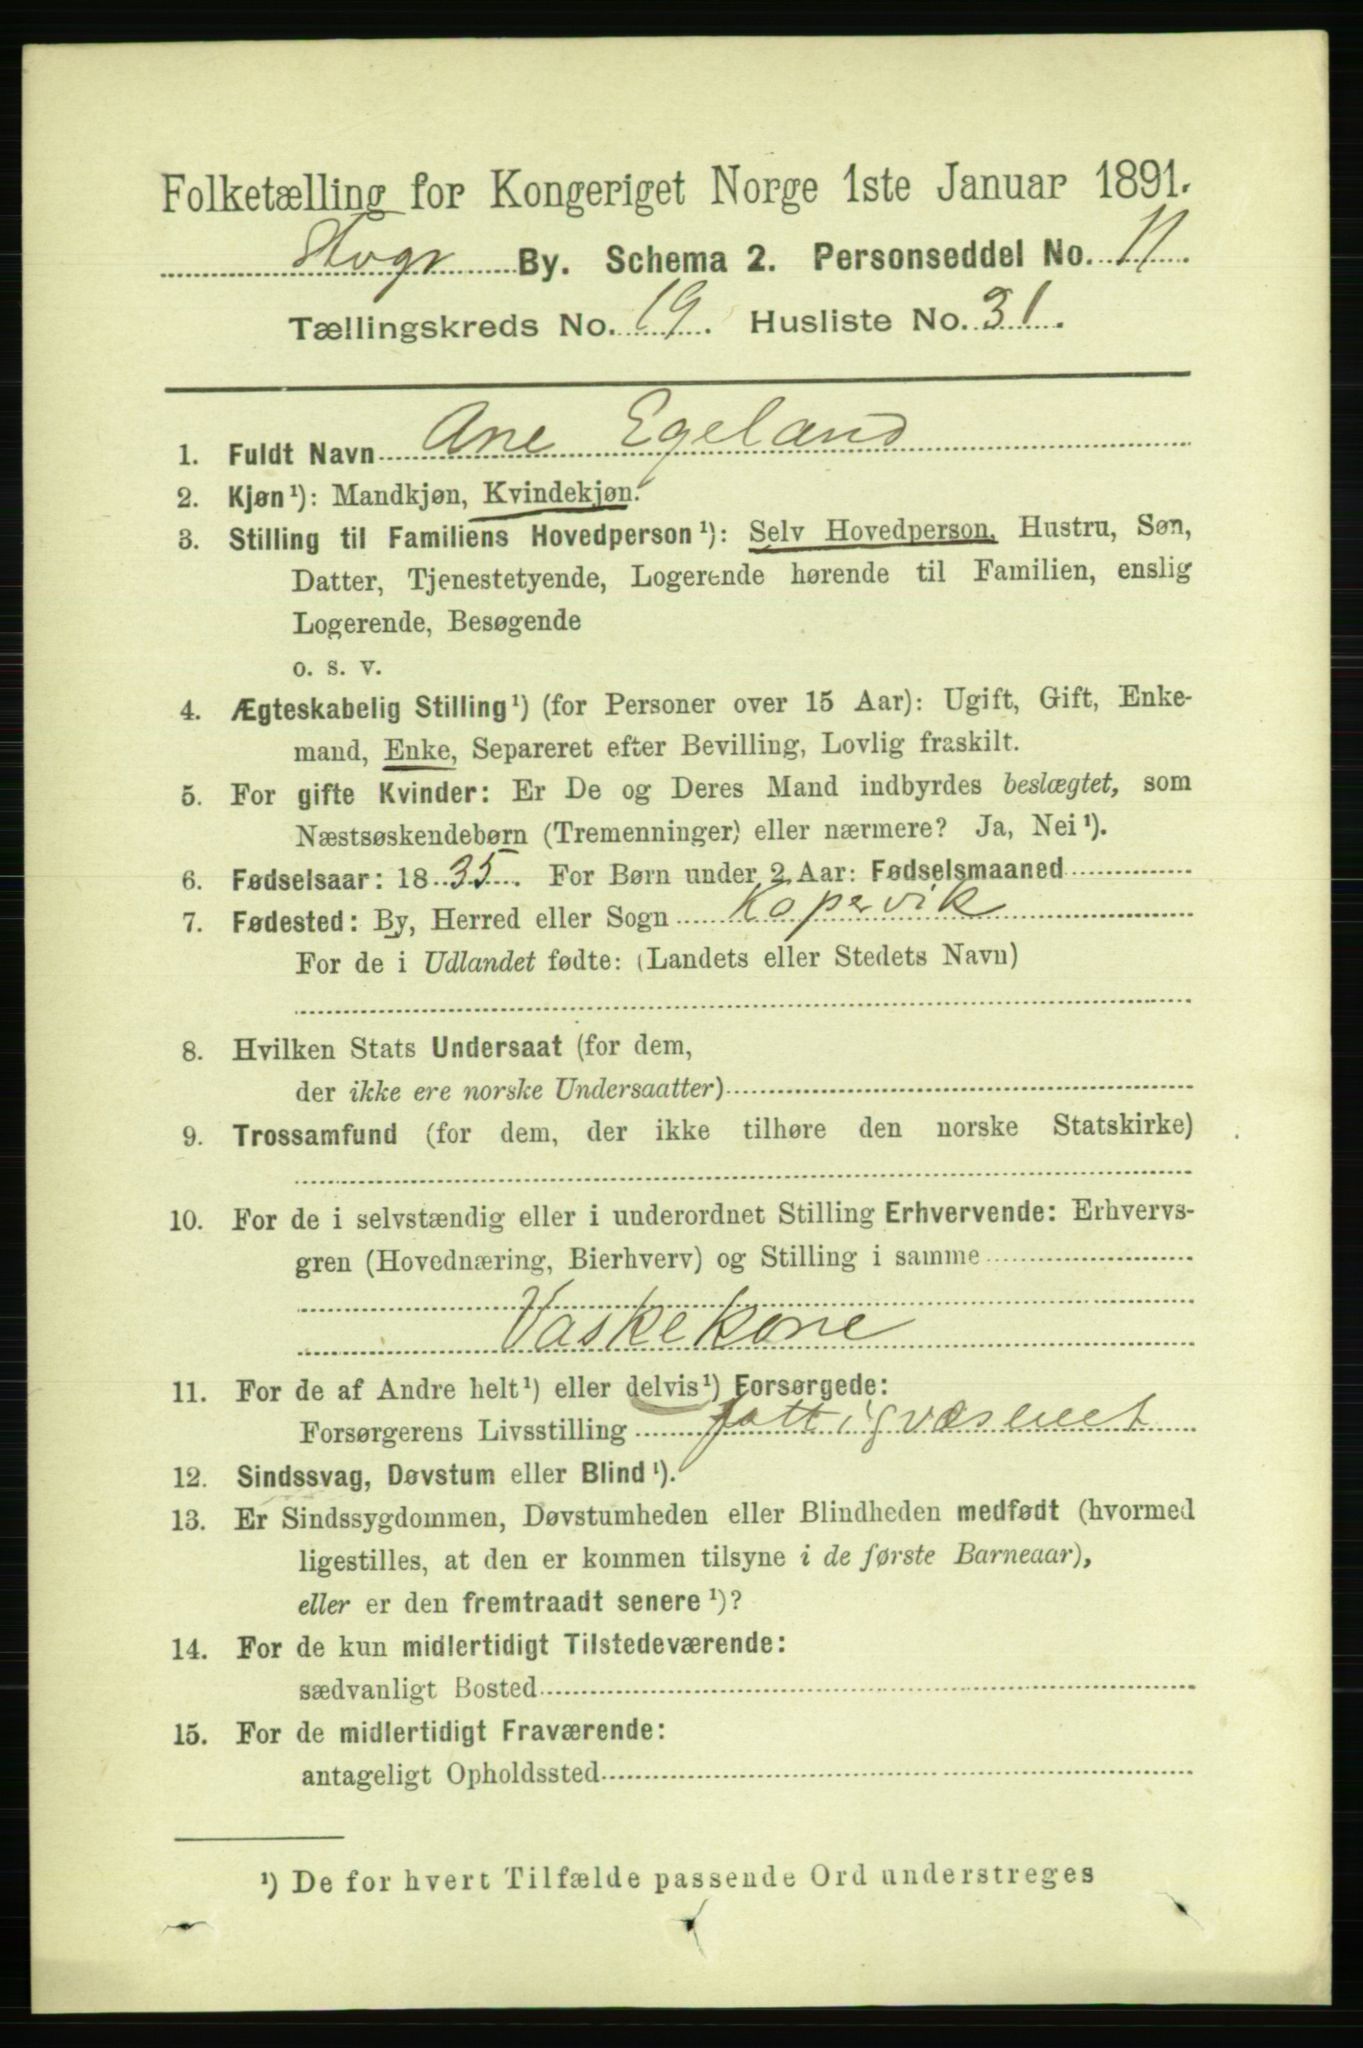 Folketælling for Kongeriget Norge 1ste Januar 1891.
By. Schema 2. Personseddel No. 11.
Tællingskreds No. 19. Husliste No. 31.
1. Fuldt Navn Ane Egeland
2. Kjøn¹): Mandkjøn, Kvindekjøn.
3. Stilling til Familiens Hovedperson¹): Selv Hovedperson, Hustru, Søn,
Datter, Tjenestetyende, Logerende hørende til Familien, enslig
Logerende, Besøgende
o. s. v.
4. Ægteskabelig Stilling¹) (for Personer over 15 Aar): Ugift, Gift, Enke-
mand, Enke, Separeret efter Bevilling, Lovlig fraskilt.
5. For gifte Kvinder: Er De og Deres Mand indbyrdes beslægtet, som
Næstsøskendebørn (Tremenninger) eller nærmere? Ja, Nei¹).
6. Fødselsaar: 1835. For Børn under 2 Aar: Fødselsmaaned
7. Fødested: By, Herred eller Sogn Kopervik
For de i Udlandet fødte: (Landets eller Stedets Navn)
8. Hvilken Stats Undersaat (for dem,
der ikke ere norske Undersaatter)
9. Trossamfund (for dem, der ikke tilhøre den norske Statskirke)
10. For de i selvstændig eller i underordnet Stilling Erhvervende: Erhvervs-
gren (Hovednæring, Bierhverv) og Stilling i samme
Vaskekone
11. For de af Andre helt¹) eller delvis¹) Forsørgede:
Forsørgerens Livsstilling fattigvæsenet
12. Sindssvag, Døvstum eller Blind¹).
13. Er Sindssygdommen, Døvstumheden eller Blindheden medfødt (hvormed
ligestilles, at den er kommen tilsyne i de første Barneaar),
eller er den fremtraadt senere¹)?
14. For de kun midlertidigt Tilstedeværende:
sædvanligt Bosted
15. For de midlertidigt Fraværende:
antageligt Opholdssted
¹) De for hvert Tilfælde passende Ord understreges